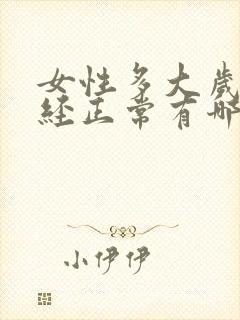 女性多大岁
经正常有哪
小伊伊